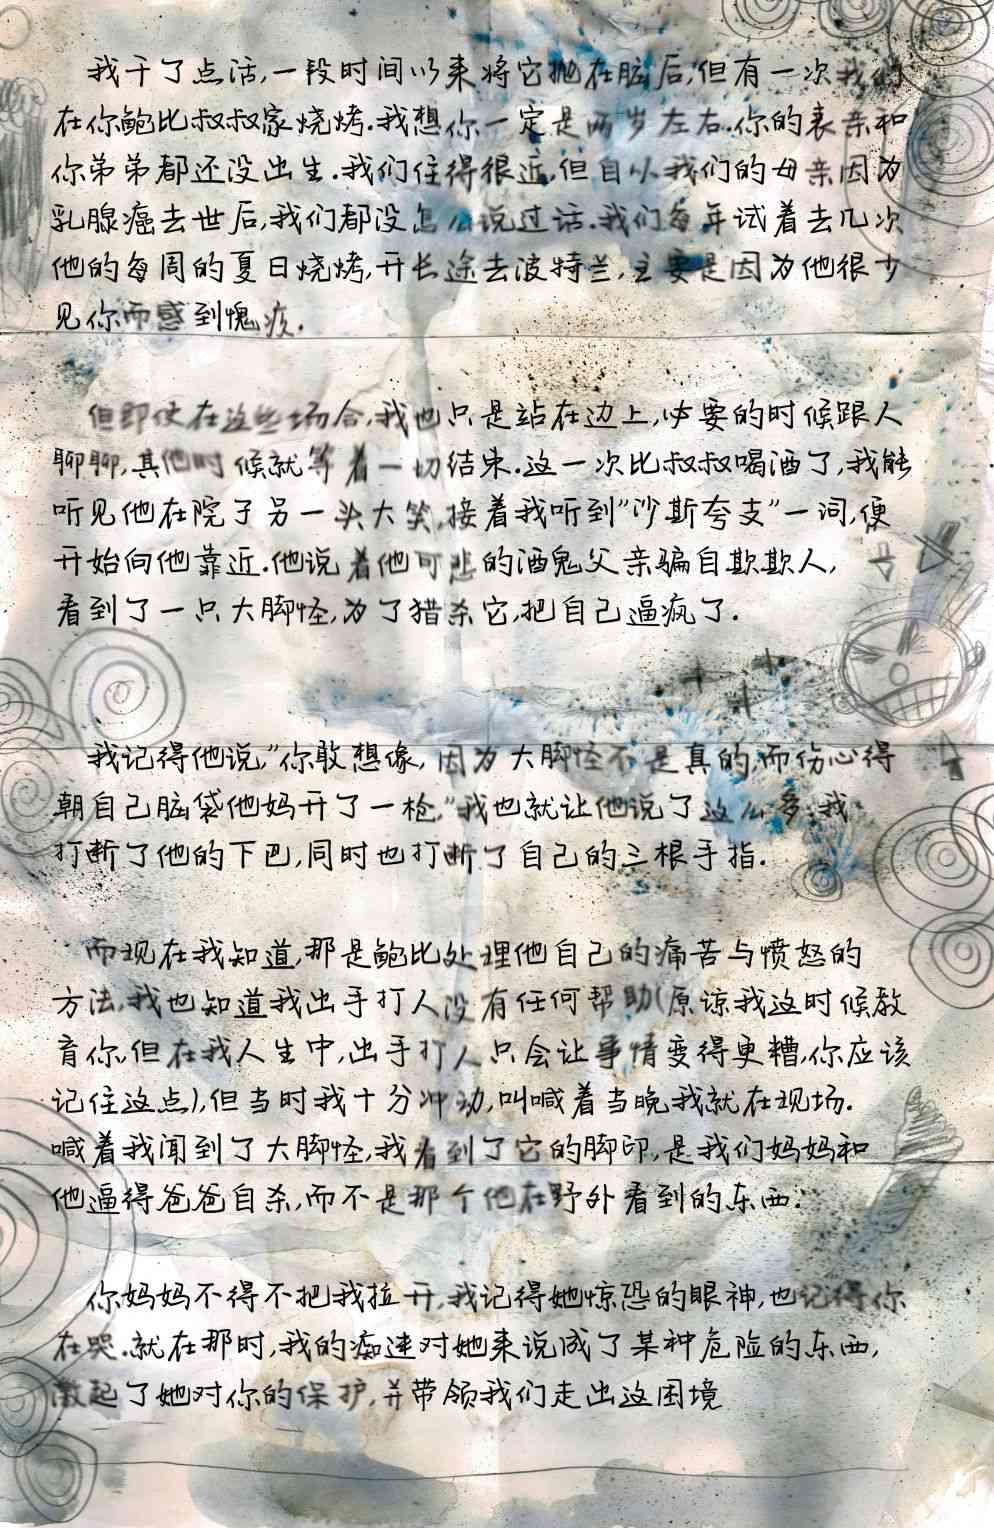 我干了点活,一段时间以来将它抛在脑后,但有一次我们
在你鲍比叔叔家烧烤.我想你一定是两岁左右.你的表亲和
你弟弟都还没出生.我们住得很近,但自从我们的母亲因为
乳腺癌去世后,我们都没怎么说过话.我们每年试着去几次
他的每周的夏日烧烤,开长途去波特兰,主要是因为他很少
见你而感到愧疚.
但即使在这些场合,我也只是站在边上,必要的时候跟人
聊聊,其他时候就等着一切结束.这一次比叔叔喝酒了,我能
听见他在院子另一头大笑,接着我听到"沙斯夸支"一词,便
开始向他靠近.他说着他可悲的酒鬼父亲骗自欺欺人,
看到了一只大脚怪,为了猎杀它,把自己逼疯了.
我记得他说,"你敢想像,因为大脚怪不是真的,而伤心得
朝自己脑袋他妈开了一枪,"我也就让他说了这么多.我
打断了他的下巴,同时也打断了自己的三根手指.
而现在我知道,那是鲍比处理他自己的痛苦与愤怒的
方法,我也知道我出手打人没有任何帮助(原谅我这时候教
育你,但在我人生中,出手打人只会让事情变得更糟,你应该
记住这点),但当时我十分冲动,叫喊着当晚我就在现场.
喊着我闻到了大脚怪,我看到了它的脚印,是我们妈妈和
他逼得爸爸自杀,而不是那个他在野外看到的东西.
你妈妈不得不把我拉开,我记得她惊恐的眼神,也记得你
在哭.就在那时,我的痴迷对她来说成了某种危险的东西,
激起了她对你的保护,并带领我们走出这困境